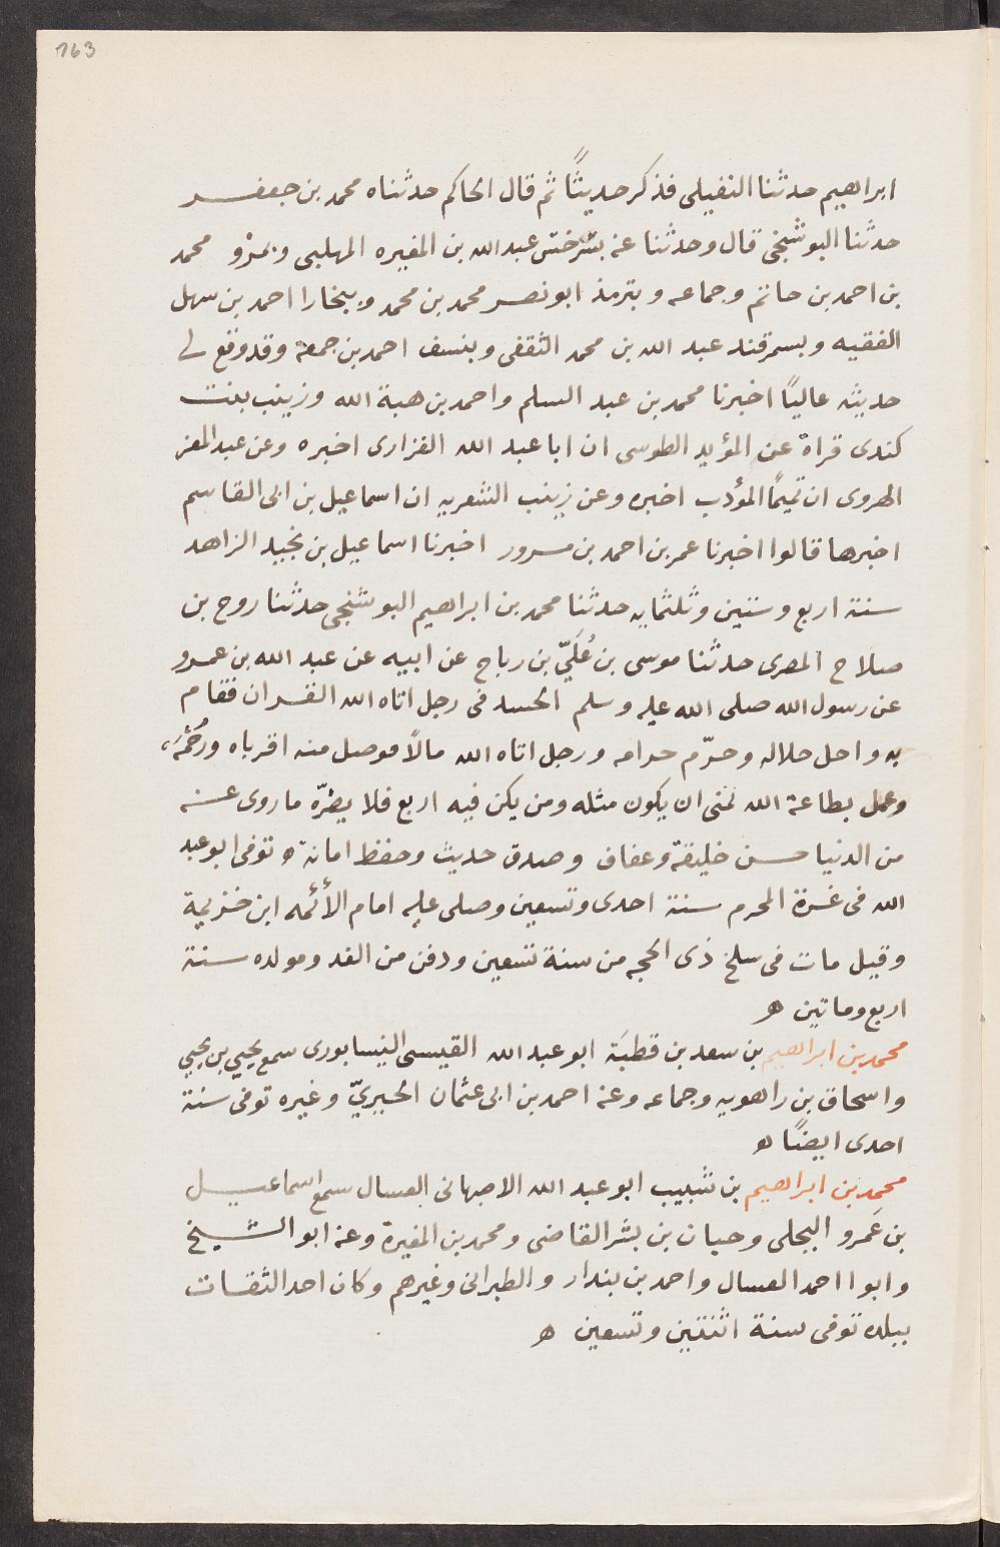 163
ابراهيم حدثنا النفيلى فذكر حديثًا ثم قال الحاكم حدثناه محمد بن جعفر
حدثنا البوشنجى قال وحدثنا عنه بسرخس عبد الله بن المغيره المهلبى وبمرْو محمد
بن احمد بن حاتم وجماعه وبترمذ ابو نصر محمد بن محمد وببخارا احمد بن سهل
الفقيه وبسمرقند عبد الله بن محمد الثقفى وبنسف احمد بن جمعة وقد وقع لى
حديثه عاليًا اخبرنا محمد بن عبد السلم واحمد بن هبة الله وزينب بنت
كندى قراة عن المؤيد الطوسى ان ابا عبد الله الفزارى اخبره وعن عبد المعز
الهروى ان تميمًا المؤدب اخبره وعن زينب الشعريه ان اسماعيل بن ابى القاسم
اخبرها قالوا اخبرنا عمر بن احمد بن مسرور اخبرنا اسماعيل بن نجيد الزاهد
سنة اربع وستين وثلثمايه حدثنا محمد بن ابراهيم البوشنجى حدثنا روح بن
صلاح المصرى حدثنا موسى بن عُلَيّ بن رباح عن ابيه عن عبد الله بن عمرو
عن رسول الله صلى الله عليه وسلم الحسد فى رجل اتاه الله القران فقام
به واحل حلاله وحرّم حرامه ورجل اتاه الله مالًا فوصل منه اقرباه ورَحِمَه
وعمل بطاعة الله تمنى ان يكون مثله ومن يكن فيه اربع فلا يضرّه ما روى عنه
من الدنيا حسن خليقة وعفاف وصدق حديث وحفظ امانة ه توفى ابو عبد
الله فى غرة المحرم سنة احدى وتسعين وصلى عليه امام الأئمه ابن خزيمة
وقيل مات فى سلخ ذى الحجه من سنة تسعين ودفن من الغد ومولده سنة
اربع وماتين ه
محمد بن ابراهيم بن سعد بن قطبَة ابو عبد الله القيسى النيسابورى سمع يحيي بن يحيي
واسحاق بن راهويه وجماعه وعنه احمد بن ابى عثمان الحيريّ وغيره توفى سنة
احدى ايضًا ه
محمد بن ابراهيم بن شبيب ابو عبد الله الاصبهانى العسال سمع اسماعيل
بن عَمرو البجلى وحيان بن بشر القاضى ومحمد بن المغيرة وعنه ابو الشيخ
وابوا احمد العسال واحمد بن بندار والطبرانى وغيرهم وكان احد الثقات
ببلده توفى سنة اثنتين وتسعين ه